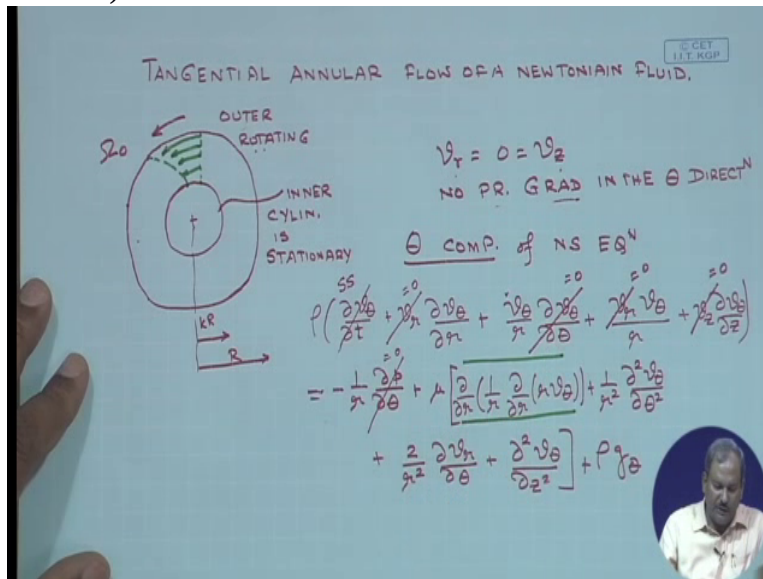 © CET
I.I.T. KGP
TANGENTIAL ANNULAR FLOW OF A NEWTONIAIN FLUID.
OUTER
ROTATING
Ω0
INNER
CYLIN.
IS
STATIONARY
kR
R
υr = 0 = υz
NO PR. GRAD IN THE θ DIRECTᴺ
θ COMP. of NS EQᴺ
SS =0 =0 =0 =0
ρ(∂υθ/∂t + υr ∂υθ/∂r + υθ/r ∂υθ/∂θ + υr υθ/r + υz ∂υθ/∂z)
=0
= - 1/r ∂p/∂θ + μ[∂/∂r(1/r ∂/∂r(rυθ)) + 1/r² ∂²υθ/∂θ²
+ 2/r² ∂υr/∂θ + ∂²υθ/∂z²] + ρgθ